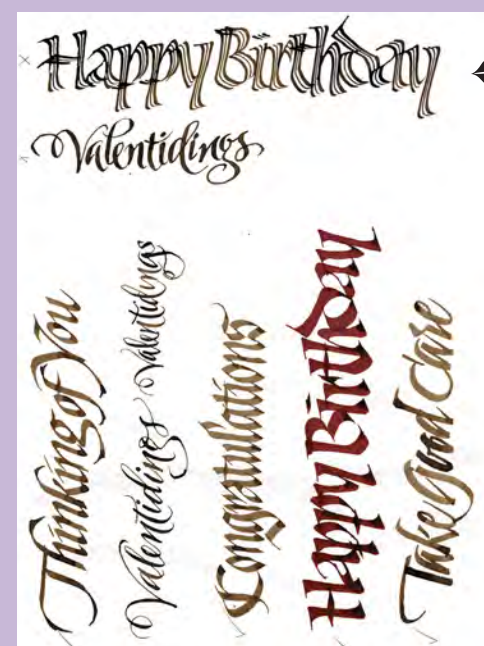 Happy Birthday
Valentidings
Thinking of You
Valentidings Valentidings
Congratulations
Happy Birthday
Take Good Care